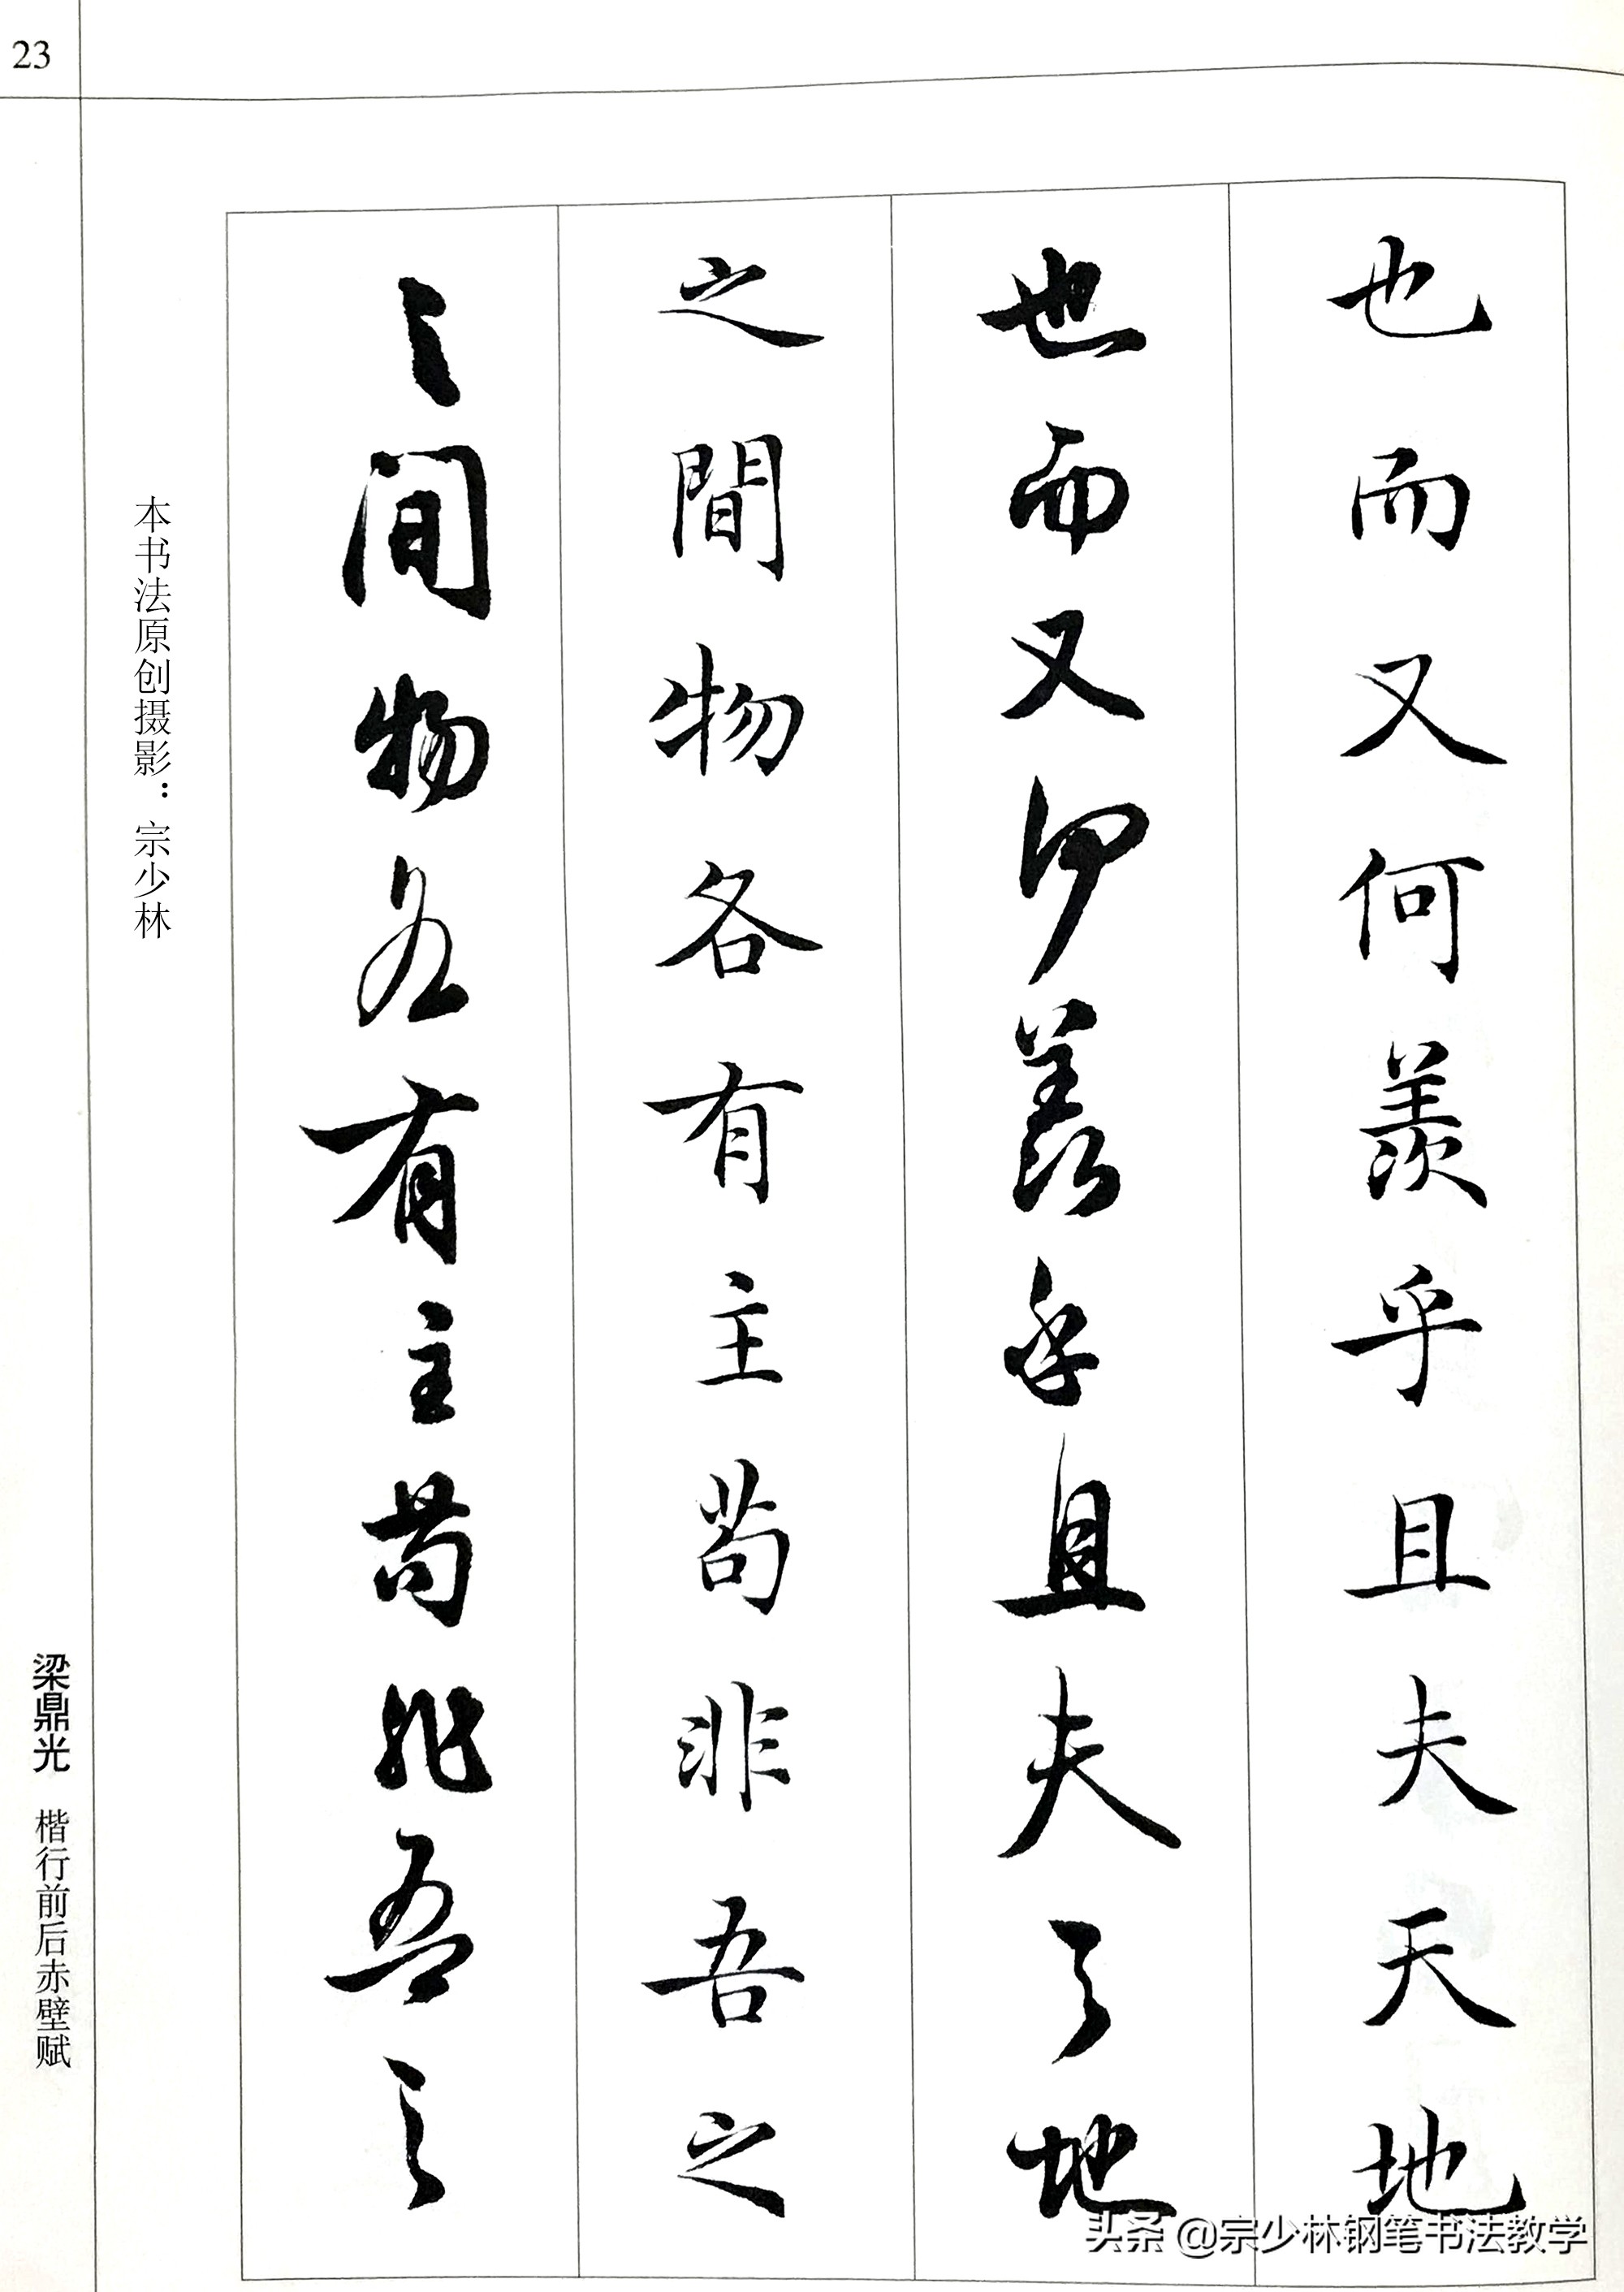 23
也而又何羨乎且夫天地
也而又何羨乎且夫天地
之間物各有主苟非吾之
之间物各有主苟非吾之
本书法原创摄影：宗少林
梁鼎光 楷行前后赤壁赋
头条 @宗少林钢笔书法教学